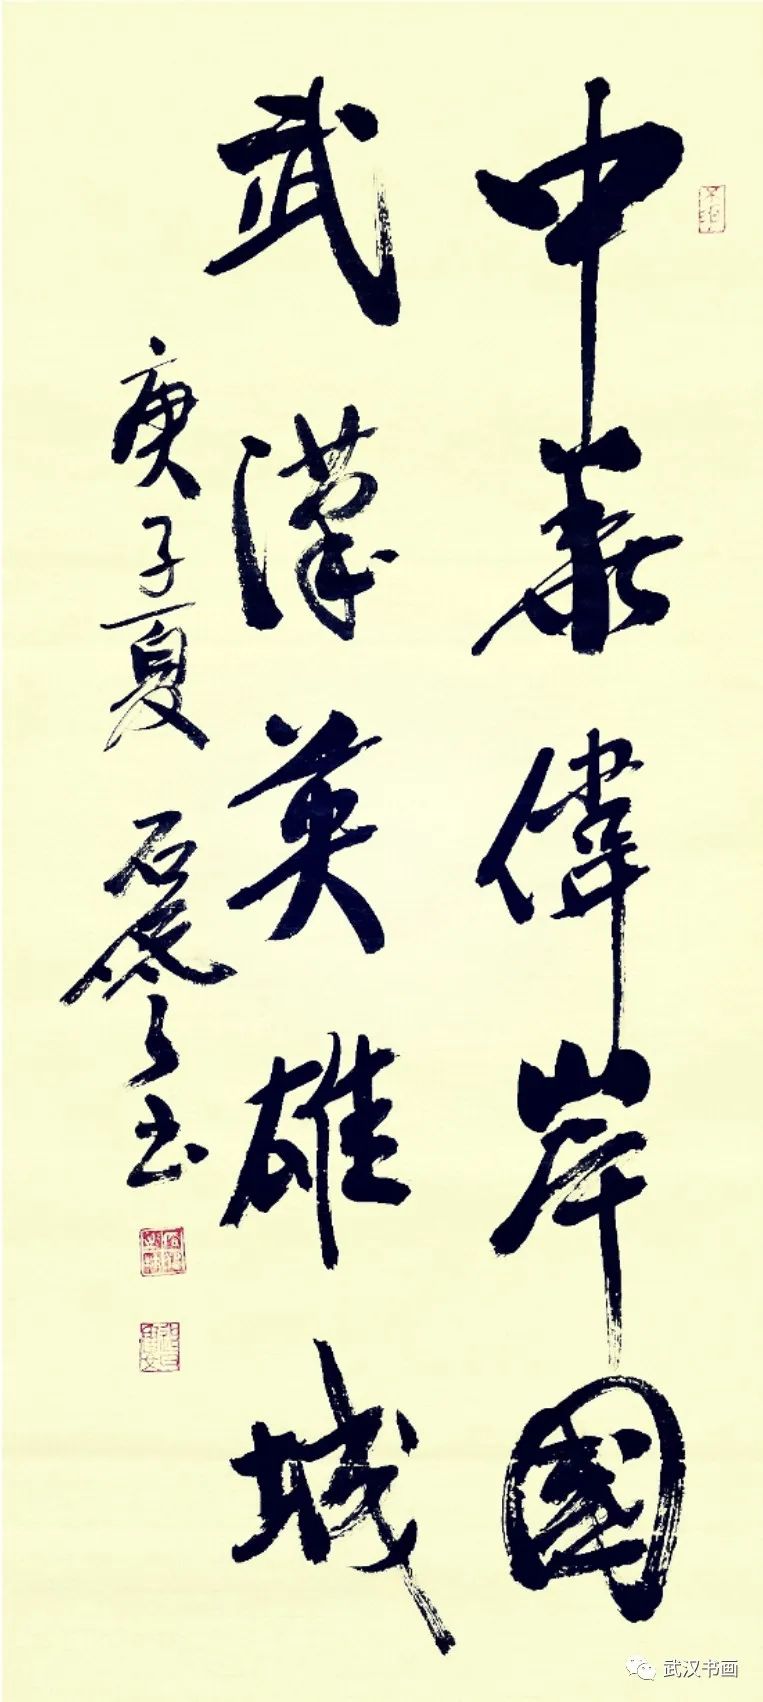 中華偉岸國
武漢英雄城
庚子夏 石 書
武汉书画